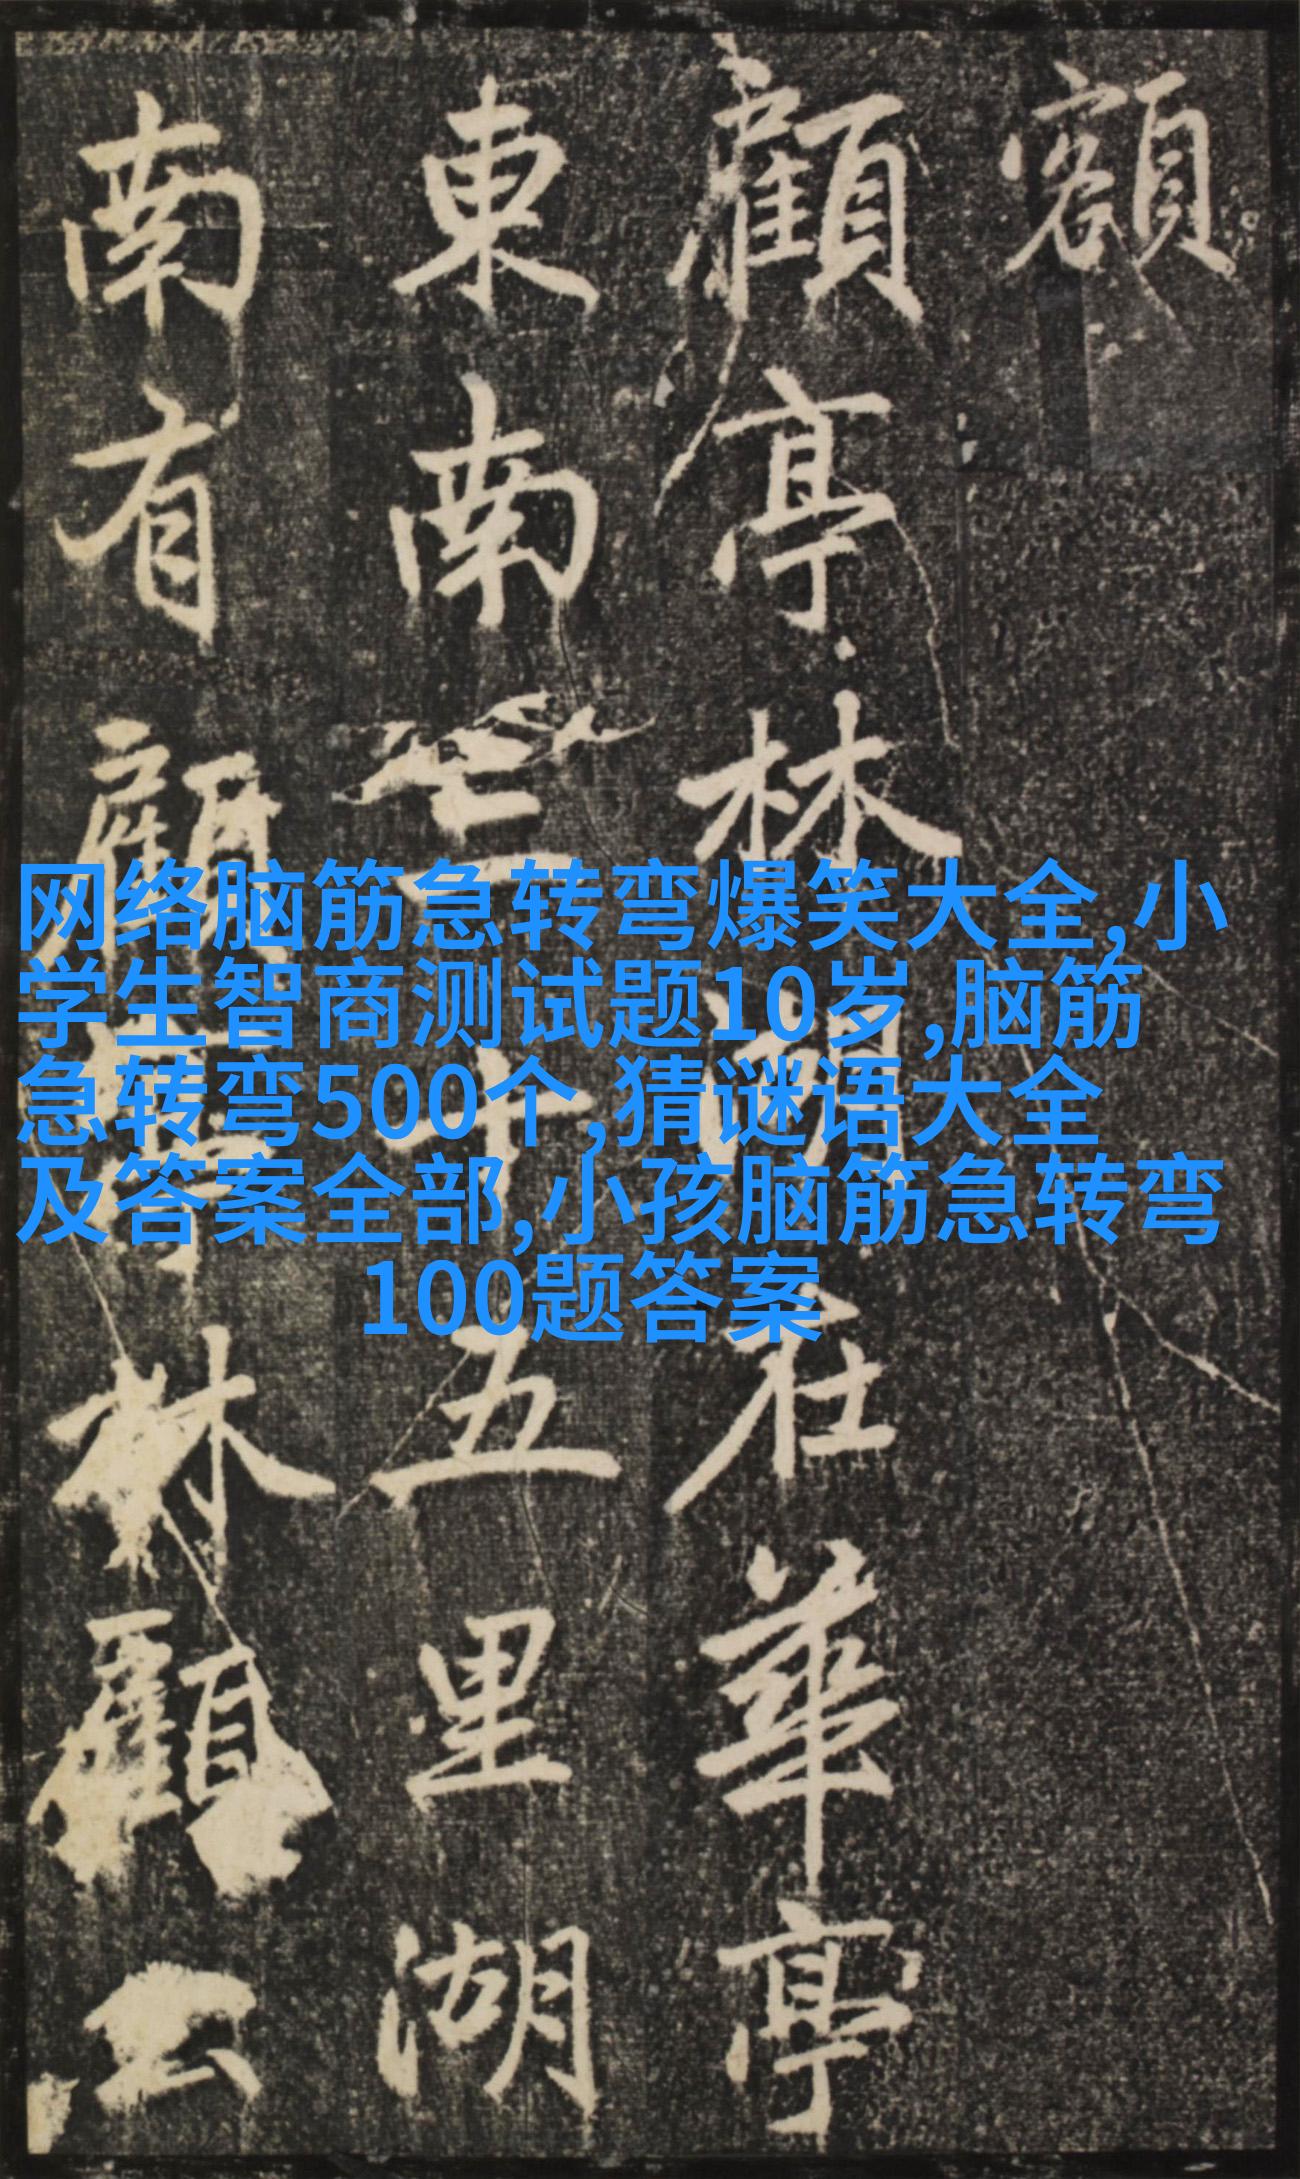 額
顧亭林湖在華亭
東南三十五里湖
南有顧亭林顧公
网络脑筋急转弯爆笑大全,小
学生智商测试题10岁,脑筋
急转弯500个,猜谜语大全
及答案全部,小孩脑筋急转弯
100题答案